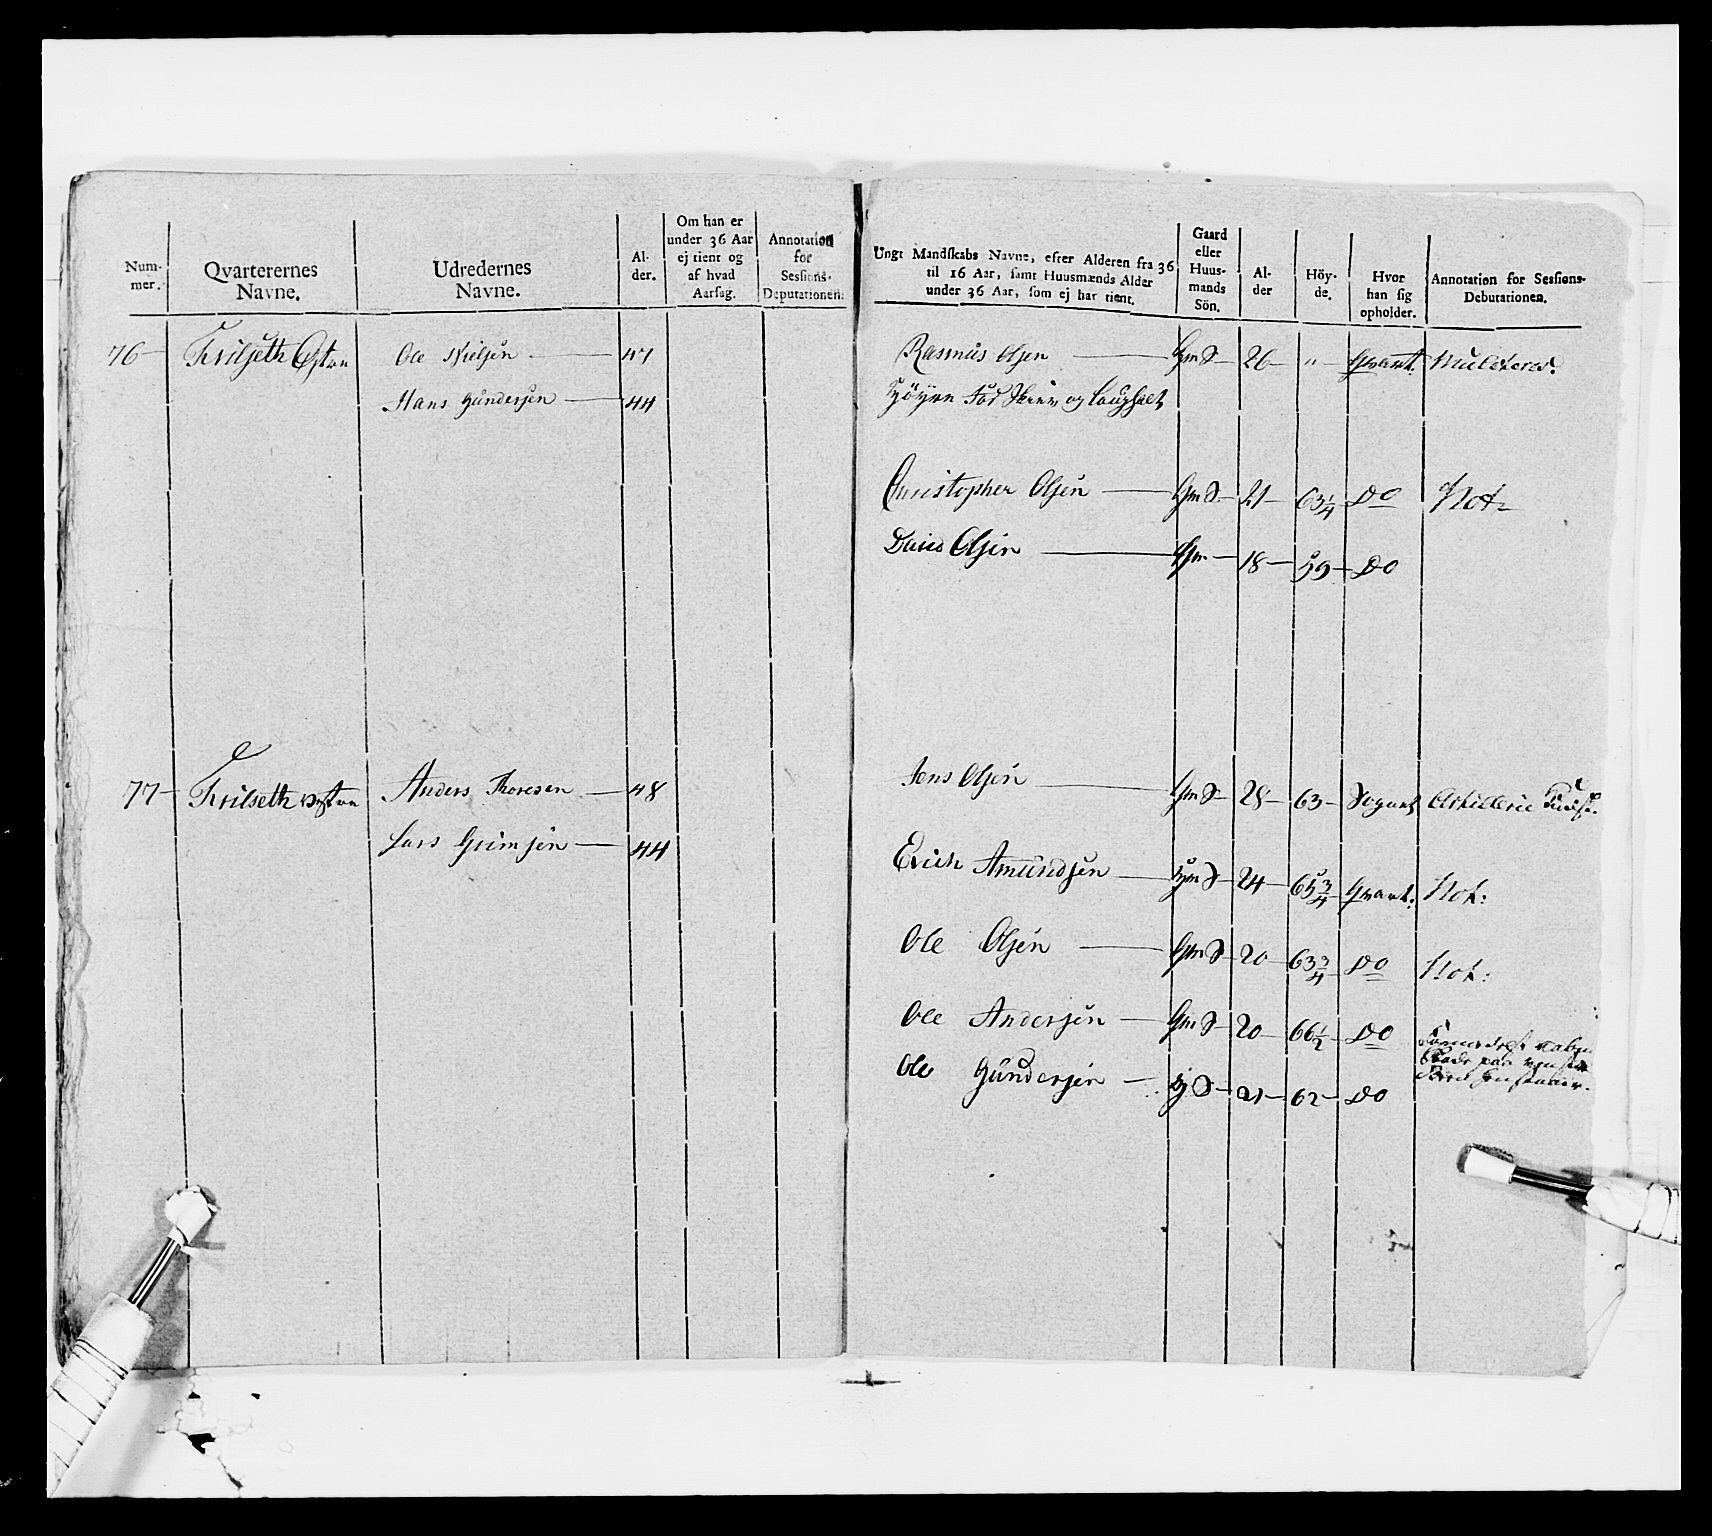 Num-
mer.
Qvarterernes
Navne.
Udredernes
Navne.
Al-
der.
Om han er
under 36 Aar
ej tient og
af hvad
Aarsag.
Annotation
for
Sessions-
Deputationen.
Ungt Mandskabs Navne, efter Alderen fra 36
til 16 Aar, samt Huusmænds Alder
under 36 Aar, som ej har tient.
Gaard
eller
Huus-
mands
Sön.
Al-
der
Höy-
de.
Hvor
han sig
opholder.
Annotation for Sessions-
Deputationen.
76 Ole Nielsen 47 Rasmus Olsen Gm S 26 " Qvart.
Hans Gundersen 44 Høyre Fod
Christopher Olsen Gm S 21 63 1/4 Do Not
Olsen Gm 18 59 Do
77 Anders Thoresen 48 Jens Olsen Gm S 28 63 Artillerie
Lars Grimsen 44
Erich Amundsen S 24 65 3/4 Qvart: Not:
Ole Olsen Gm S 20 63 3/4 Do Not:
Ole Andersen Gm S 20 66 1/2 Do
Ole Gundersen S 21 62 Do